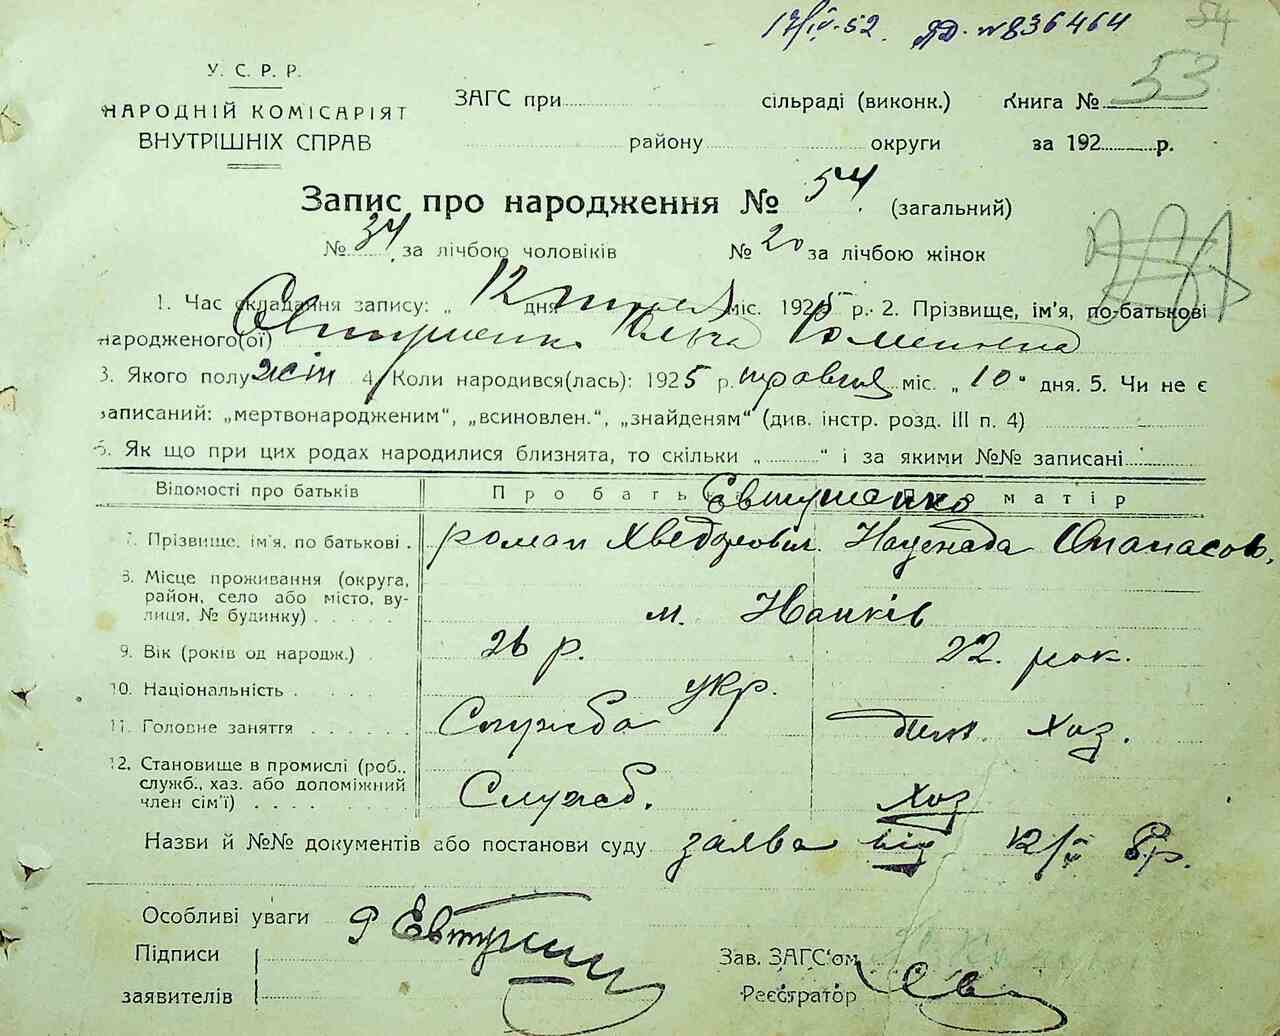 17/IV-52. ЯД. №836464
54
У. С. Р. Р.
НАРОДНІЙ КОМІСАРІЯТ
ВНУТРІШНІХ СПРАВ
ЗАГС при сільраді (виконк.) Книга № 53
району округи за 192 р.
Запис про народження № 54 (загальний)
№ 34 за лічбою чоловіків № 20 за лічбою жінок
1. Час складання запису: „ 12 дня міс. 1925 р. 2. Прізвище, ім'я, по-батькові
народженого(ої)
3. Якого полу жін 4. Коли народився(лась): 1925 р. травня міс. „ 10 " дня. 5. Чи не є
записаний: „мертвонародженим", „всиновлен.", „знайденям" (див. інстр. розд. III п. 4)
6. Як що при цих родах народилися близнята, то скільки „ " і за якими №№ записані
Відомості про батьків Про батька Про матір
Євтушенко
7. Прізвище, ім'я, по батькові. роман Хведорович. Опанасов.
8. Місце проживання (округа,
район, село або місто, ву-
лиця, № будинку) м. Харків
9. Вік (років од народж.) 26 р. 22. рок.
10. Національність укр.
11. Головне заняття Служба дом. хаз.
12. Становище в промислі (роб.,
служб., хаз. або допоміжний
член сім'ї) Служб. хаз
Назви й №№ документів або постанови суду заява від 12/V
Особливі уваги
Підписи
заявителів
Зав. ЗАГС'ом
Реєстратор